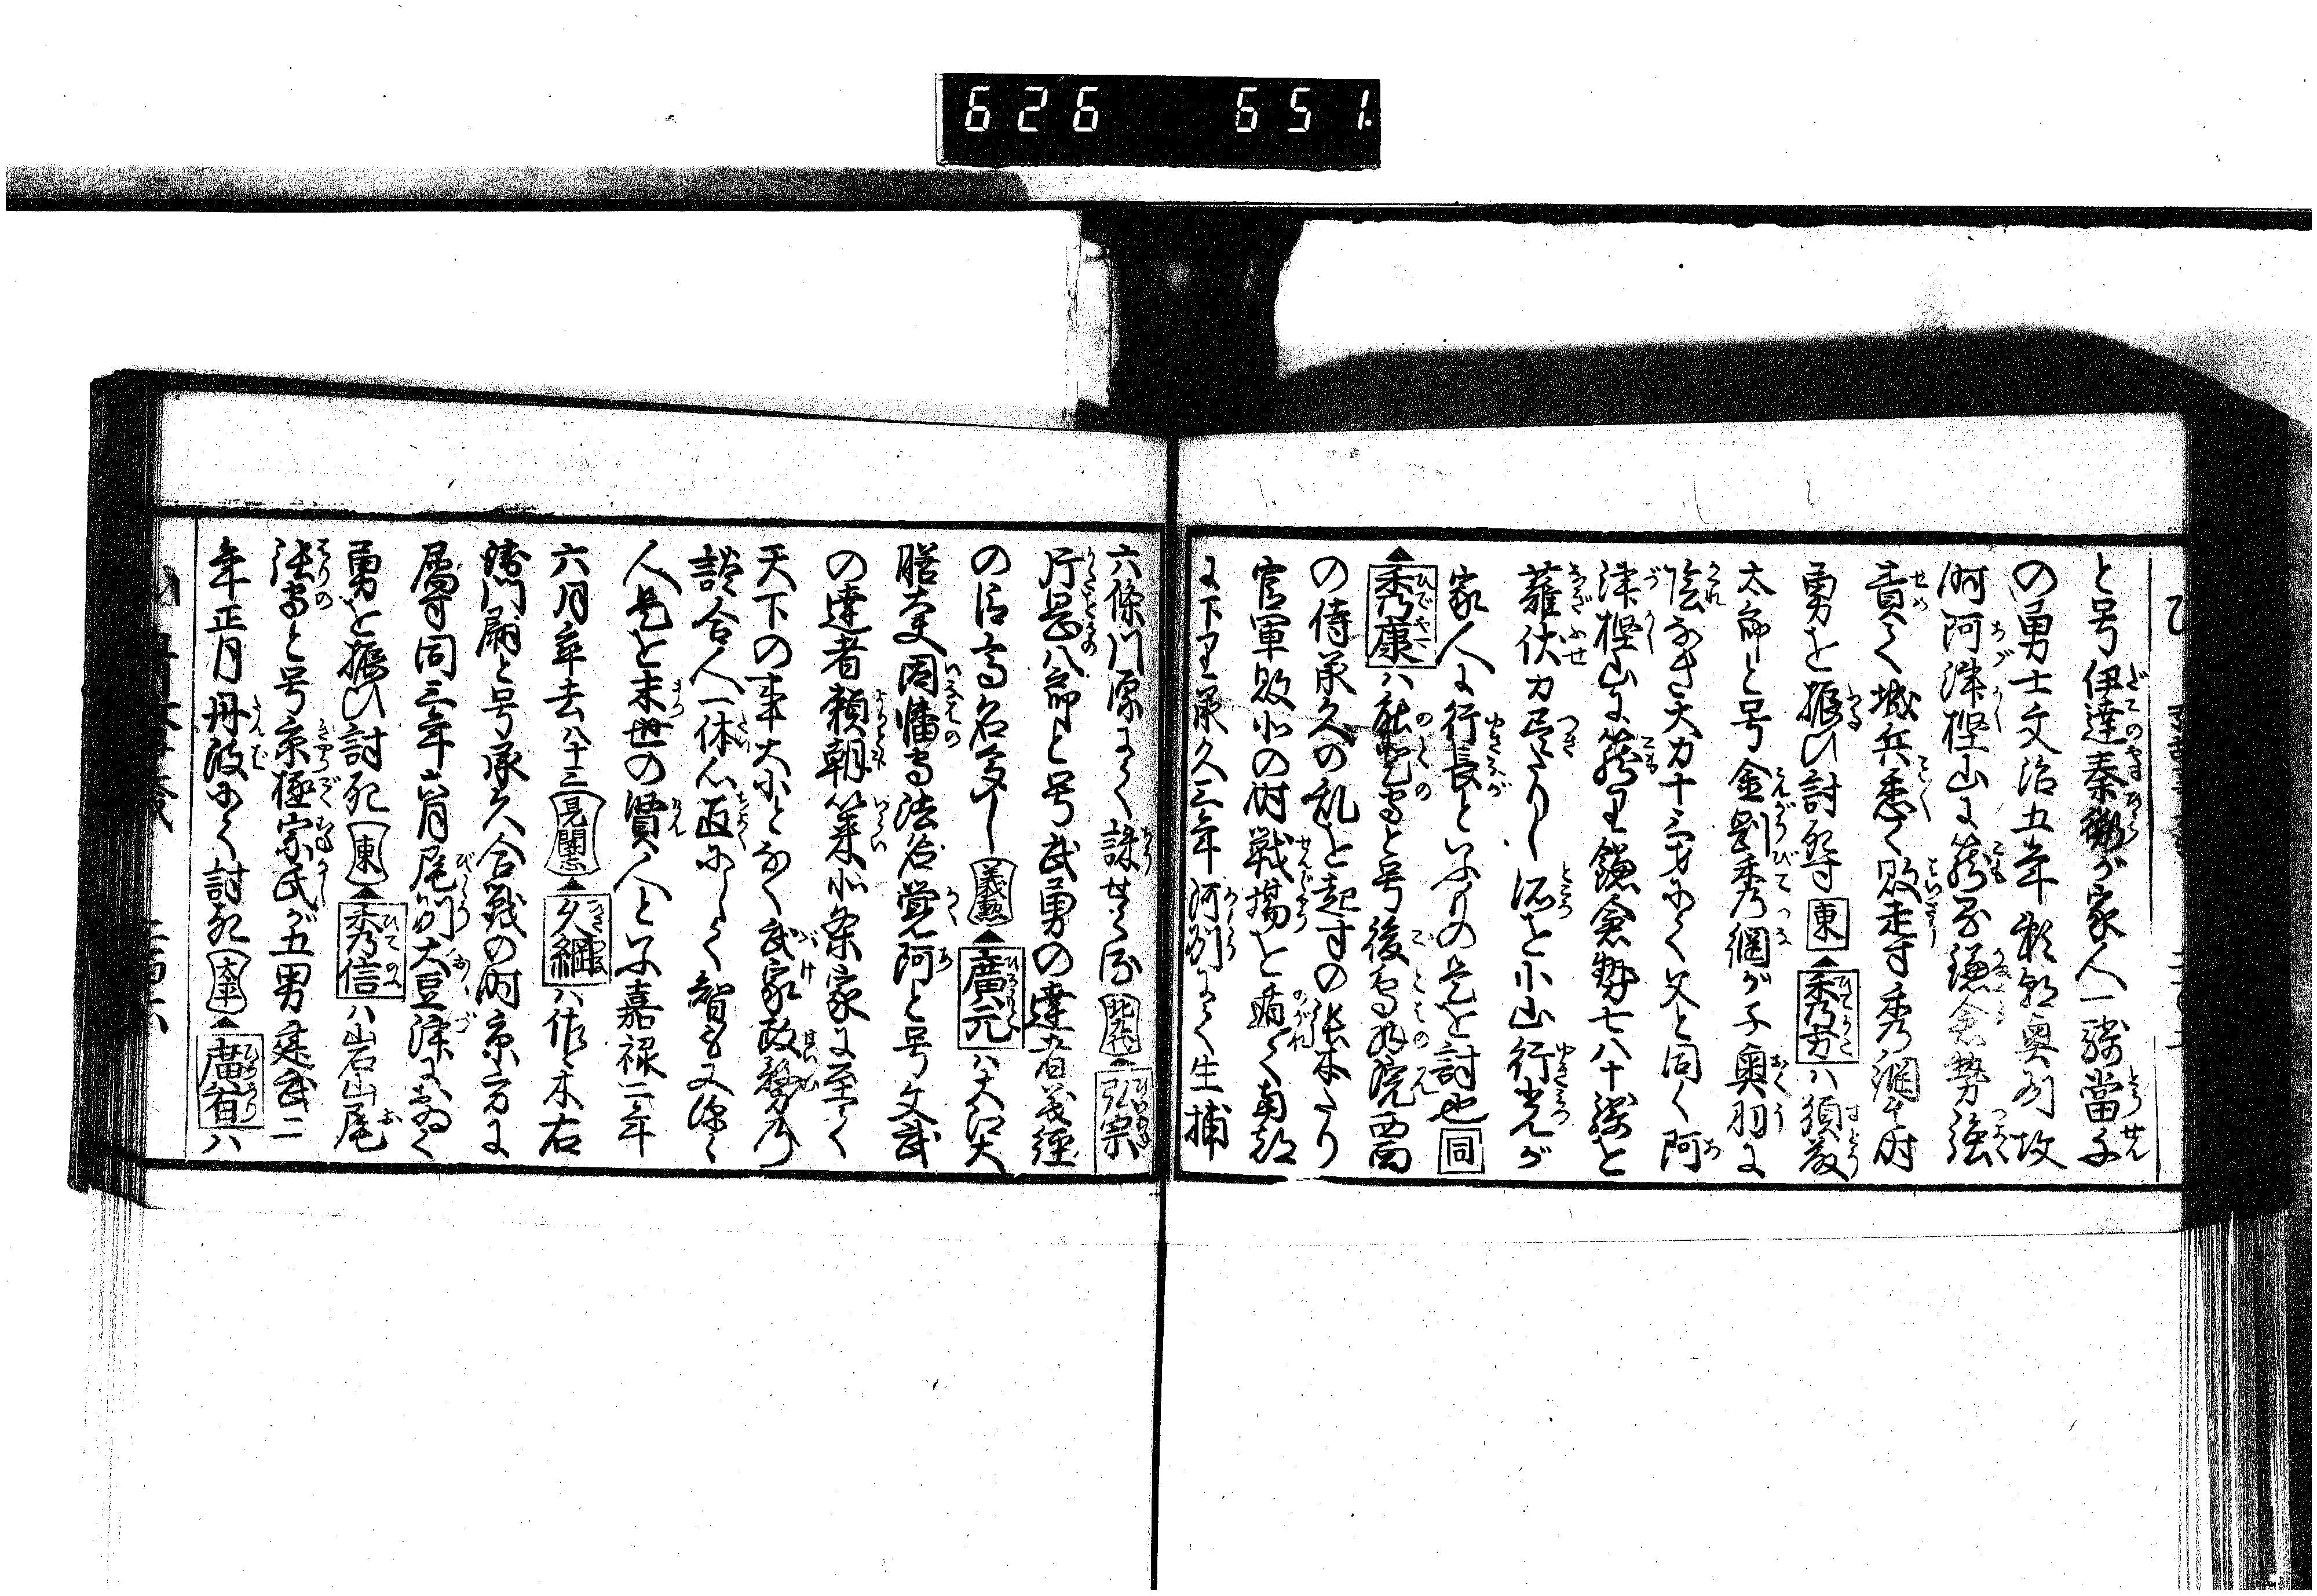 626 651.
と号伊達泰衡が家人一騎當千
の勇士文治五年頼朝奥州攻
時阿津樫山に篭る鎌倉勢強
責て城兵悉く敗走す秀綱其時
勇を振ひ討死す 東 ▲秀方ハ須藤
太郎と号金剛秀綱が子奥羽に
隠なき大力十三才にて父と同く阿
津樫山に篭り鎌倉勢七八十騎を
薙伏力尽たりし所を小山行光が
家人に行長といふもの是を討也 同
▲秀康ハ能登守と号後鳥羽院西面
の侍承久の乱を起すの張本たり
官軍敗北の時戦場を遁れて南都
に下り承久三年河州にて生捕
六條川原にて誅せらる ▲弘宗
片岡八郎と号武勇の達者義經
の臣高名多し 義勲 ▲廣元ハ大江大
膳大夫因幡守法名覚阿と号文武
の達者頼朝以来北条家に至て
天下の事大小となく武家政務乃
談合人一体心直にして智も又深く
人是を末世の賢人と云嘉禄二年
六月卒去八十三 見聞志 ▲久綱ハ佐々木右
衛門尉と号承久合戦の時京方に
属す同三年六月尾州大豆津にゐて
勇を振ひ討死 東 ▲秀信ハ岩山尾
張守と号京極宗氏が五男建武二
年正月丹波にて討死 太平 ▲廣有ハ